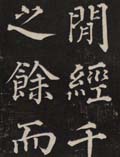 閒經千
之餘而